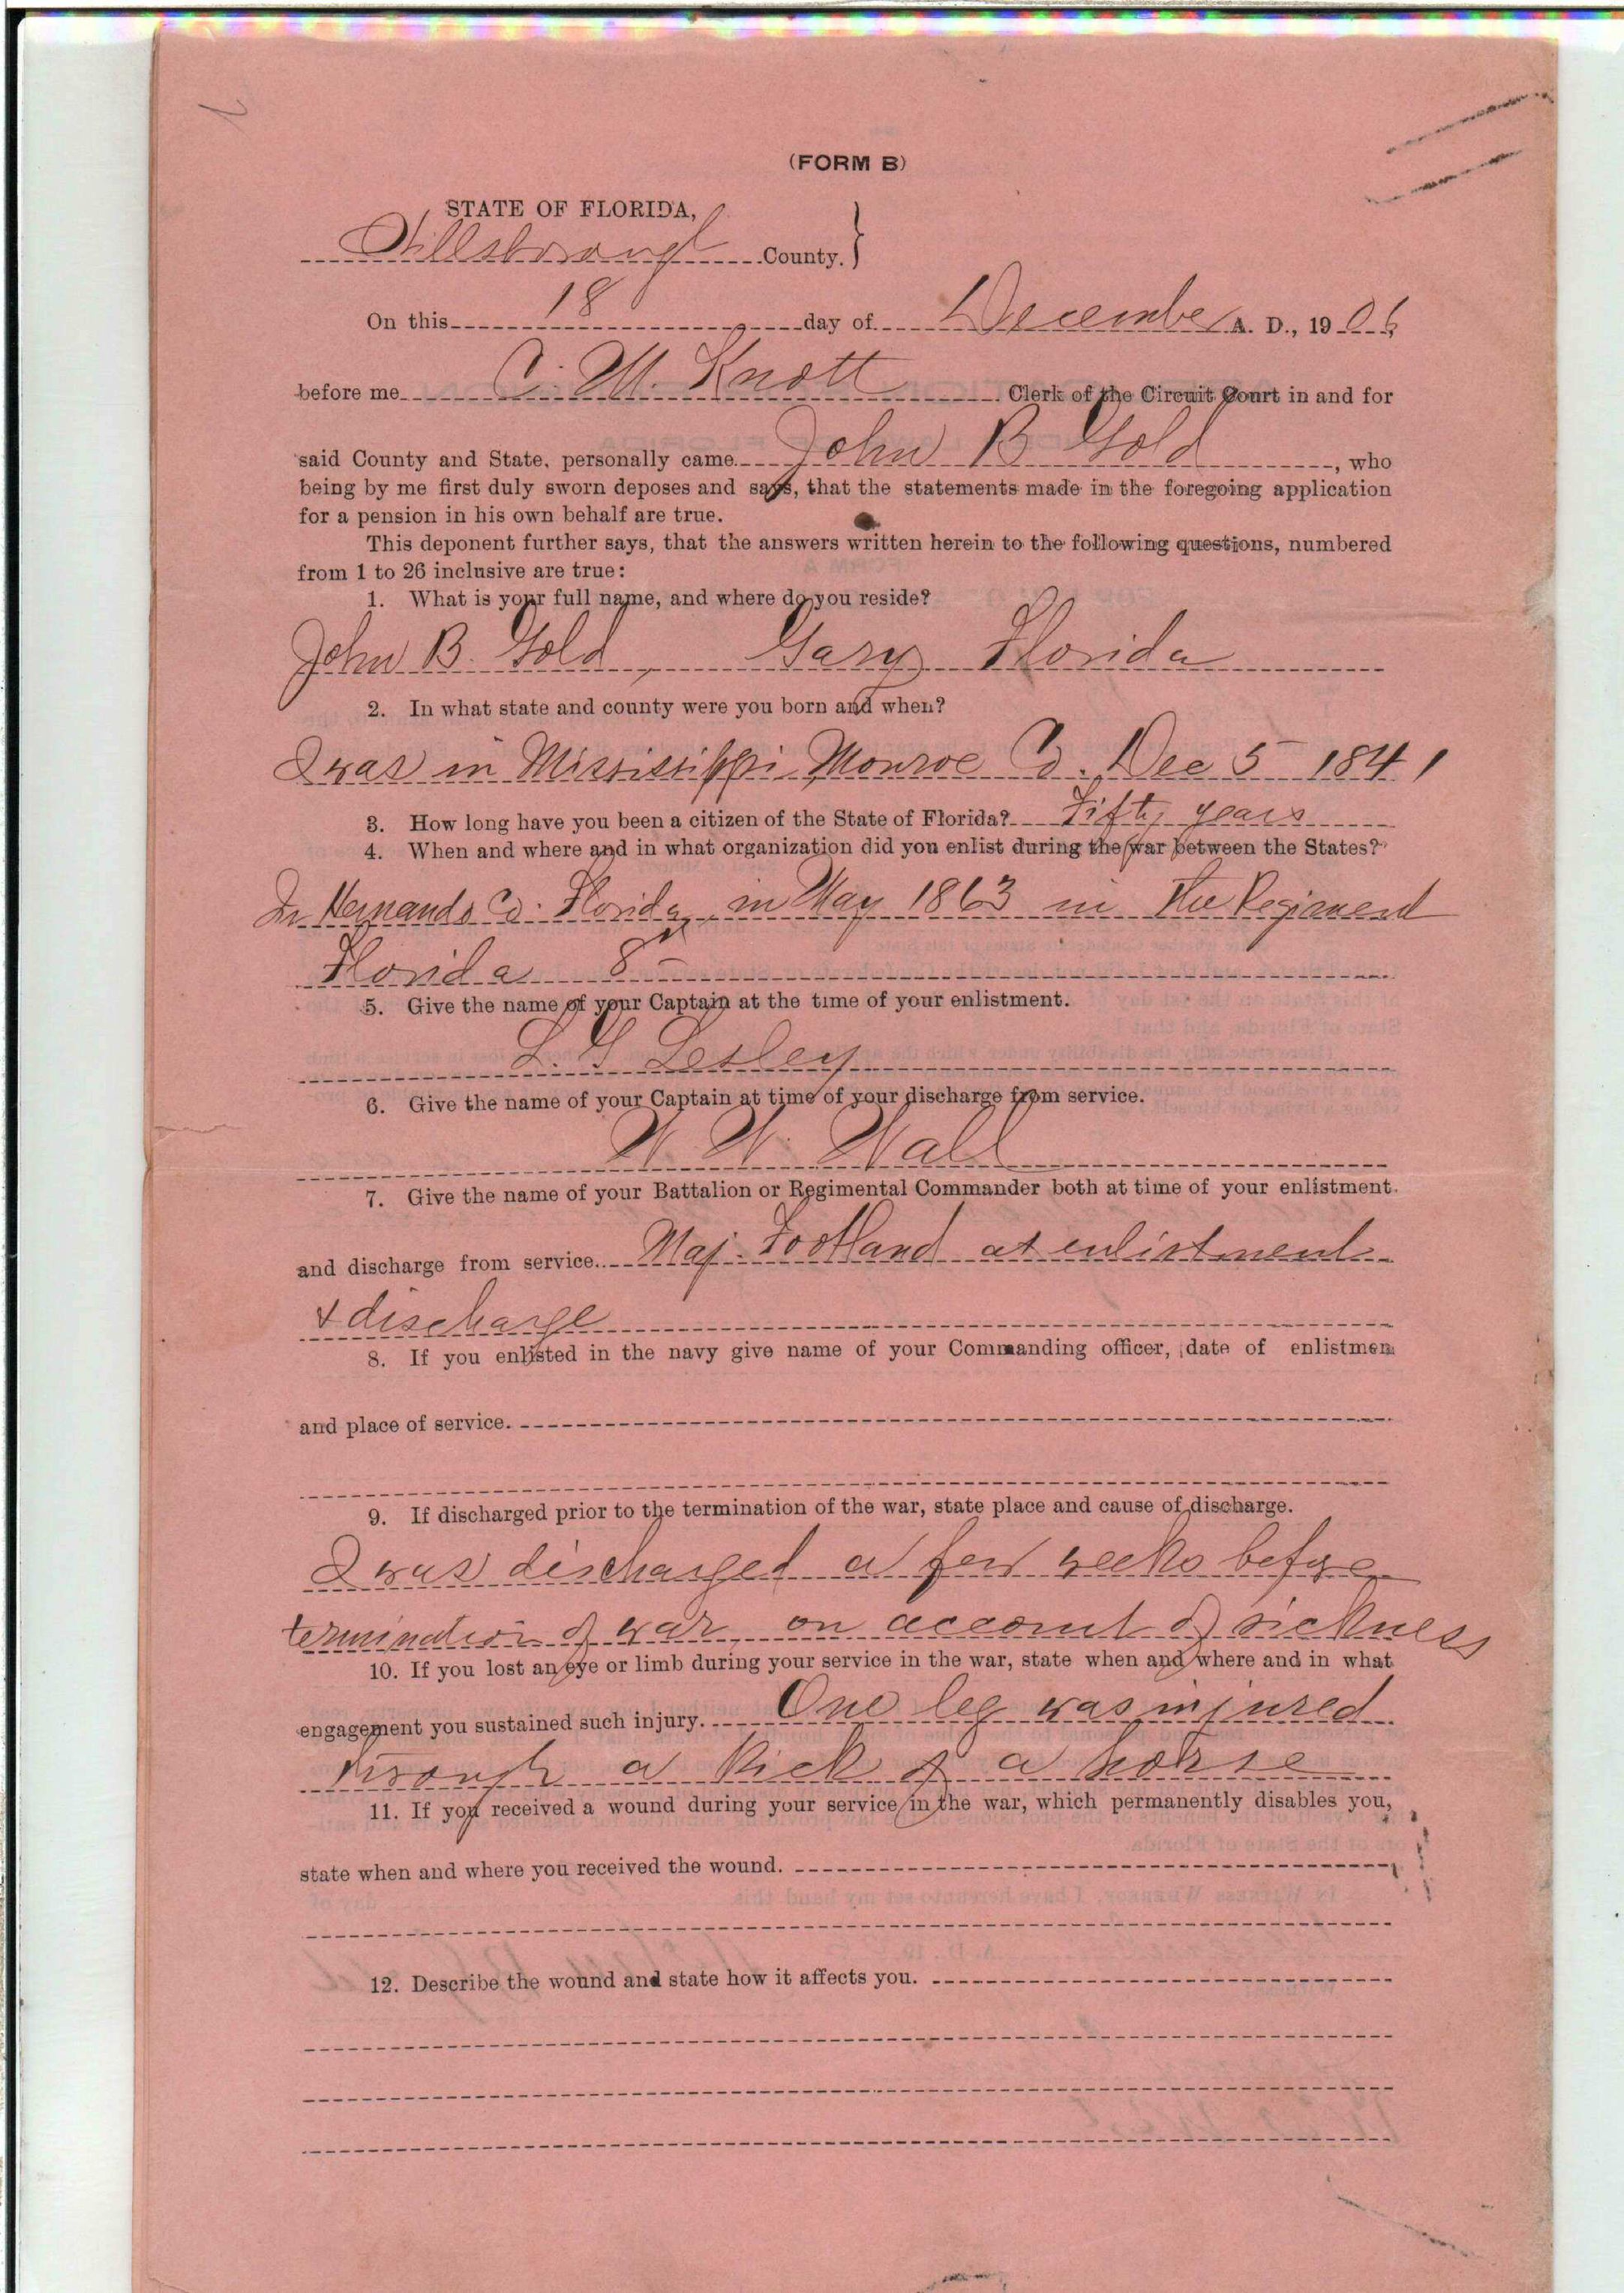 (FORM B)
STATE OF FLORIDA,
Hillsborough County.
On this 18 day of December A. D., 1906
before me C. M. Knott Clerk of the Circuit Court in and for
said County and State, personally came John B Gold, who
being by me first duly sworn deposes and says, that the statements made in the foregoing application
for a pension in his own behalf are true.
This deponent further says, that the answers written herein to the following questions, numbered
from 1 to 26 inclusive are true:
1. What is your full name, and where do you reside?
John B. Gold, Gary Florida
2. In what state and county were you born and when?
I was in Mississippi Monroe Co. Dec 5 1841
3. How long have you been a citizen of the State of Florida? Fifty years
4. When and where and in what organization did you enlist during the war between the States?
In Hernando Co. Florida, in May 1863 in the Regiment
Florida 8
5. Give the name of your Captain at the time of your enlistment.
L. G Lesley
6. Give the name of your Captain at time of your discharge from service.
W. W. Wall
7. Give the name of your Battalion or Regimental Commander both at time of your enlistment
and discharge from service. Maj. Footland at enlistment
& discharge
8. If you enlisted in the navy give name of your Commanding officer, date of enlistmen
and place of service.
9. If discharged prior to the termination of the war, state place and cause of discharge.
I was discharged a few weeks before
termination of war, on account of sickness
10. If you lost an eye or limb during your service in the war, state when and where and in what
engagement you sustained such injury. One leg was injured
through a kick of a horse
11. If you received a wound during your service in the war, which permanently disables you,
state when and where you received the wound.
12. Describe the wound and state how it affects you.